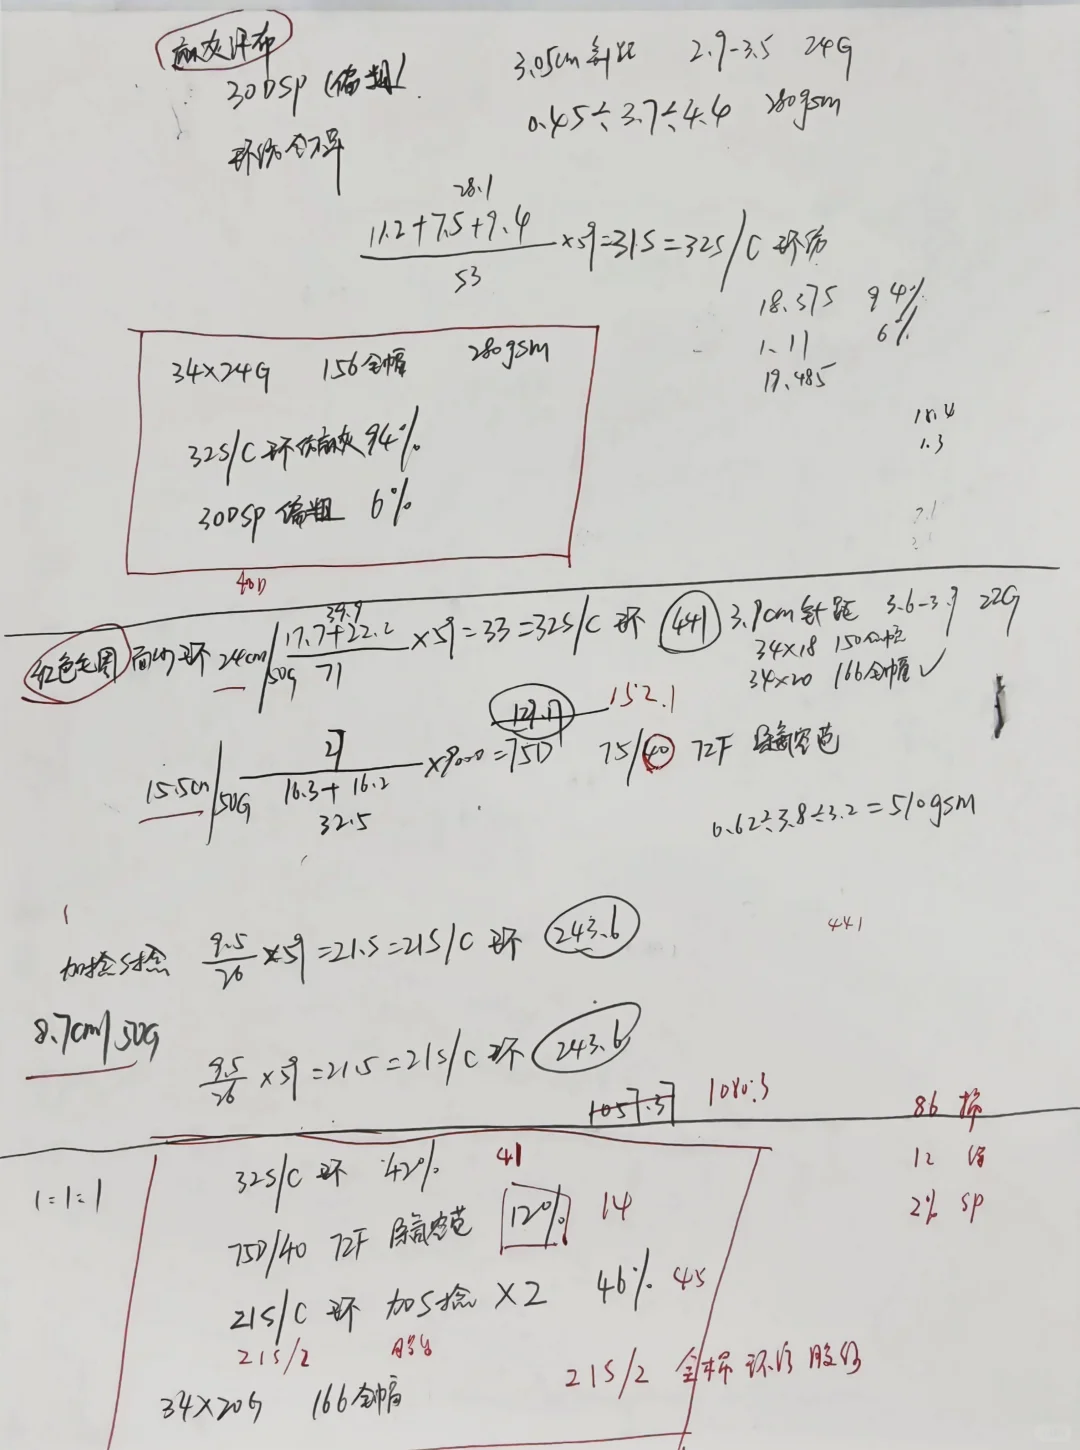 麻灰汗布
30DSP (偏粗)
3.05cm 针距 2.9-3.5 24G
0.45÷3.7÷4.4 280gsm
环纺全棉
28.1
11.2+7.5+9.4
53
×59=31.5=32S/C 环纺
18.375 94%
1.11 6%
19.485
18.4
1.3
34×24G 156全幅 280gsm
32S/C 环纺麻灰 94%
30DSP 偏粗 6%
40D
红色毛圈 面纱 环 24cm/50G
39.9
17.7+22.2
71
×59=33=32S/C 环 441
3.9cm 针距 3.6-3.9 22G
34×18 150全幅
34×20 166全幅 ✓
152.1
15.5cm/50G
27
16.3+16.2
32.5
×9000=75D 75/40 72F
0.62÷3.8÷3.2=510gsm
441
加捻S捻 9.5/26 ×59=21.5=21S/C 环 243.6
8.7cm/50G
9.5/26 ×59=21.5=21S/C 环 243.6
1057.37 1080.3
86 棉
12 涤
2% SP
1:1:1
32S/C 环 42% 41
75D/40 72F 12% 14
21S/C 环 加S捻 ×2 46% 45
21S/2 股线
21S/2 全棉 环纺 股纱
34×20G 166全幅